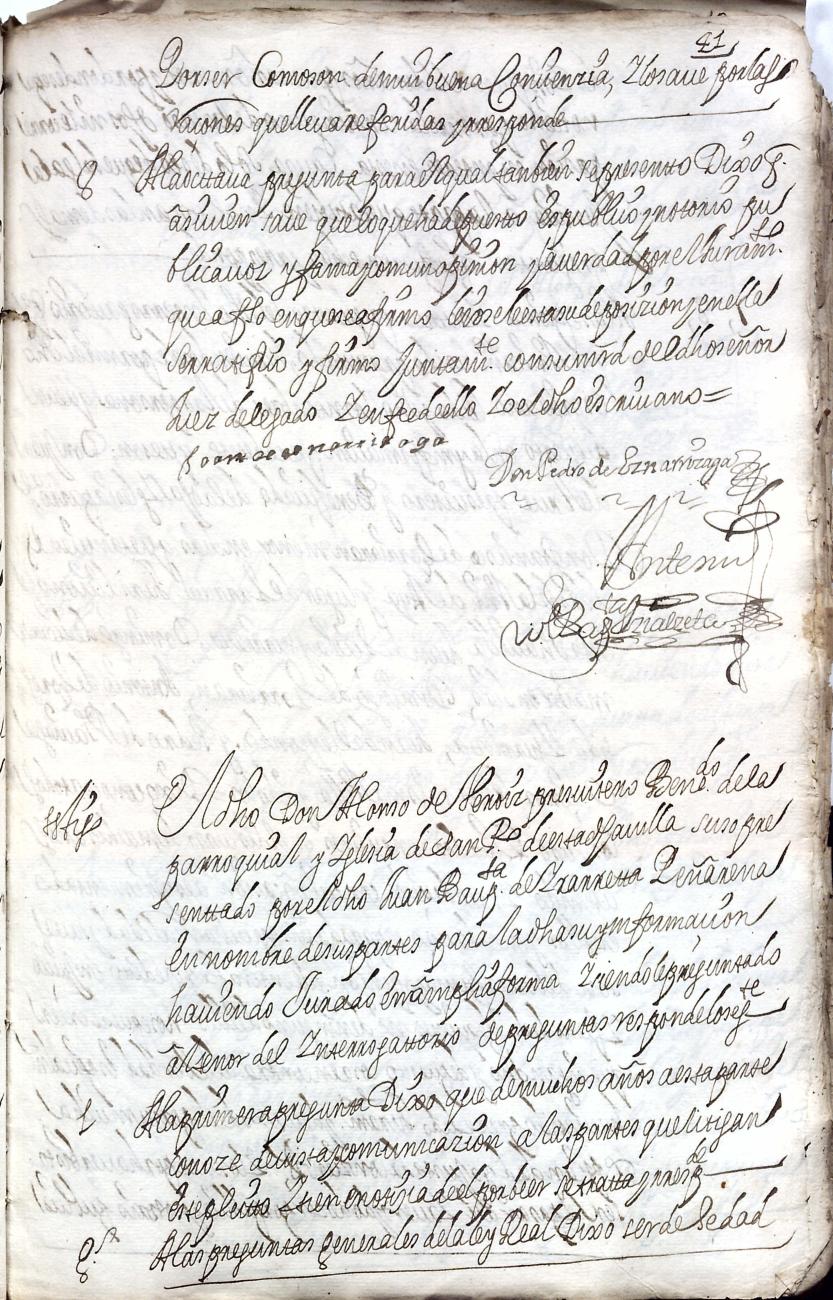 41
Por ser Como son de mui buena Conzienzia, Y lo save por las
Raçones que lleva referidas y responde
8 A la octava pregunta para el qual tanbien se presento Dixo q.
asi vien save que lo que ha depuesto es publico y notorio pu
blica voz y fama y comun opinion y la verdad por el Juram.to
que a fho en que se afirmo leiosele esta su deposizion y en ella
se rratifico y firmo Juntam.te con su mrd del dho señor
Juez delegado Y en fee de ello Yo el dho escrivano =
Don Pedro de Eznarrizaga
Ante mi
tt.o El dho Don Alonso de presvitero Ben.do de la
parroquial y Yglesia de San P.o de esta dha villa suso pre
senttado por el dho Juan Baup.ta de Yrarretta Peñarena
en nombre de sus partes para la dha su ynformazion
haviendo Jurado en amplia forma Y siendole preguntado
al tenor del Ynterrogattorio de preguntas responde lo sig.te
1 A la primera pregunta Dixo que de muchos años a esta parte
Conoze de vista y comunicazion a las partes que litigan
este pleitto Y tiene notizia de el por bier se tratta y rresp.de
G.s A las preguntas generales de la ley Real Dixo ser de hedad